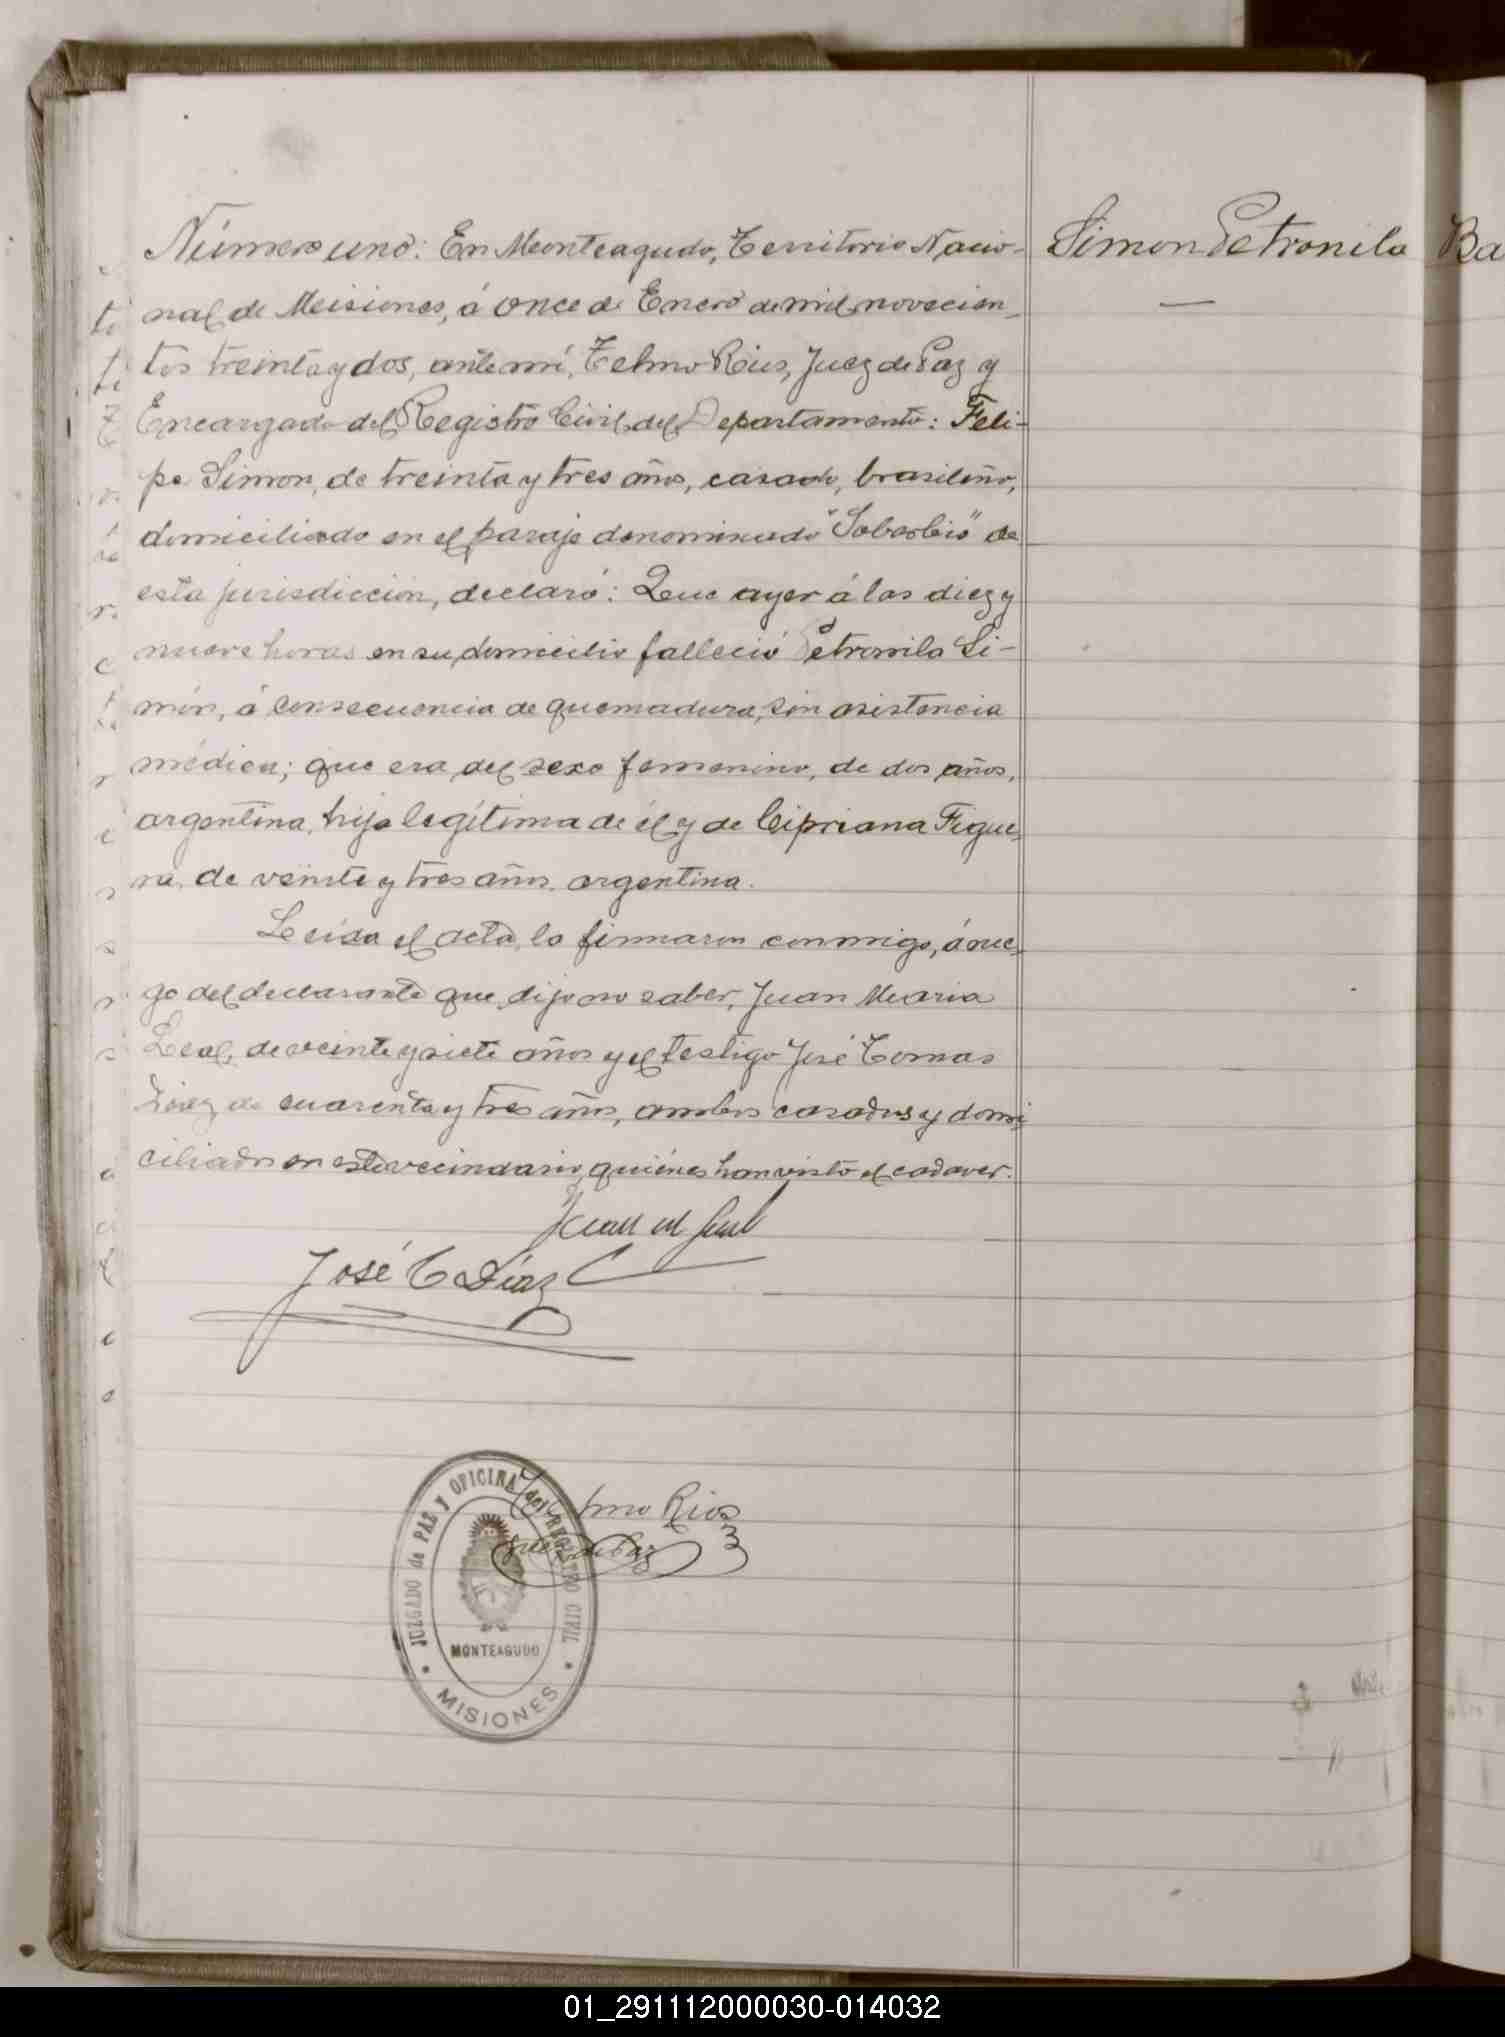 Número uno: En Monteagudo, Territorio Nacio-
nal de Misiones, á once de Enero de mil novecien-
tos treinta y dos, ante mí, Telmo Rios, Juez de Paz y
Encargado del Registro Civil del Departamento: Feli-
pe Simon, de treinta y tres años, casado, brasileño,
domiciliado en el paraje denominado "Soberbio" de
esta jurisdicción, declaró: Que ayer á las diez y
nueve horas en su domicilio falleció Petronila Si-
mon, á consecuencia de quemadura, sin asistencia
médica; que era del sexo femenino, de dos años,
argentina, hija legítima de él y de Cipriana Figue-
ra, de veinte y tres años, argentina.
Leida el acta, la firmaron conmigo, á rue-
go del declarante que dijo no saber, Juan Maria
Leal, de veinte y siete años y el testigo José Tomas
Díaz de cuarenta y tres años, ambos casados y domi-
ciliados en este vecindario, quiénes han visto el cadaver.
Juan M Leal
José T Díaz
Telmo Rios
Juez de Paz
JUZGADO de PAZ Y OFICINA del REGISTRO CIVIL
MONTEAGUDO
MISIONES
Simon Petronila
Ba
01_291112000030-014032